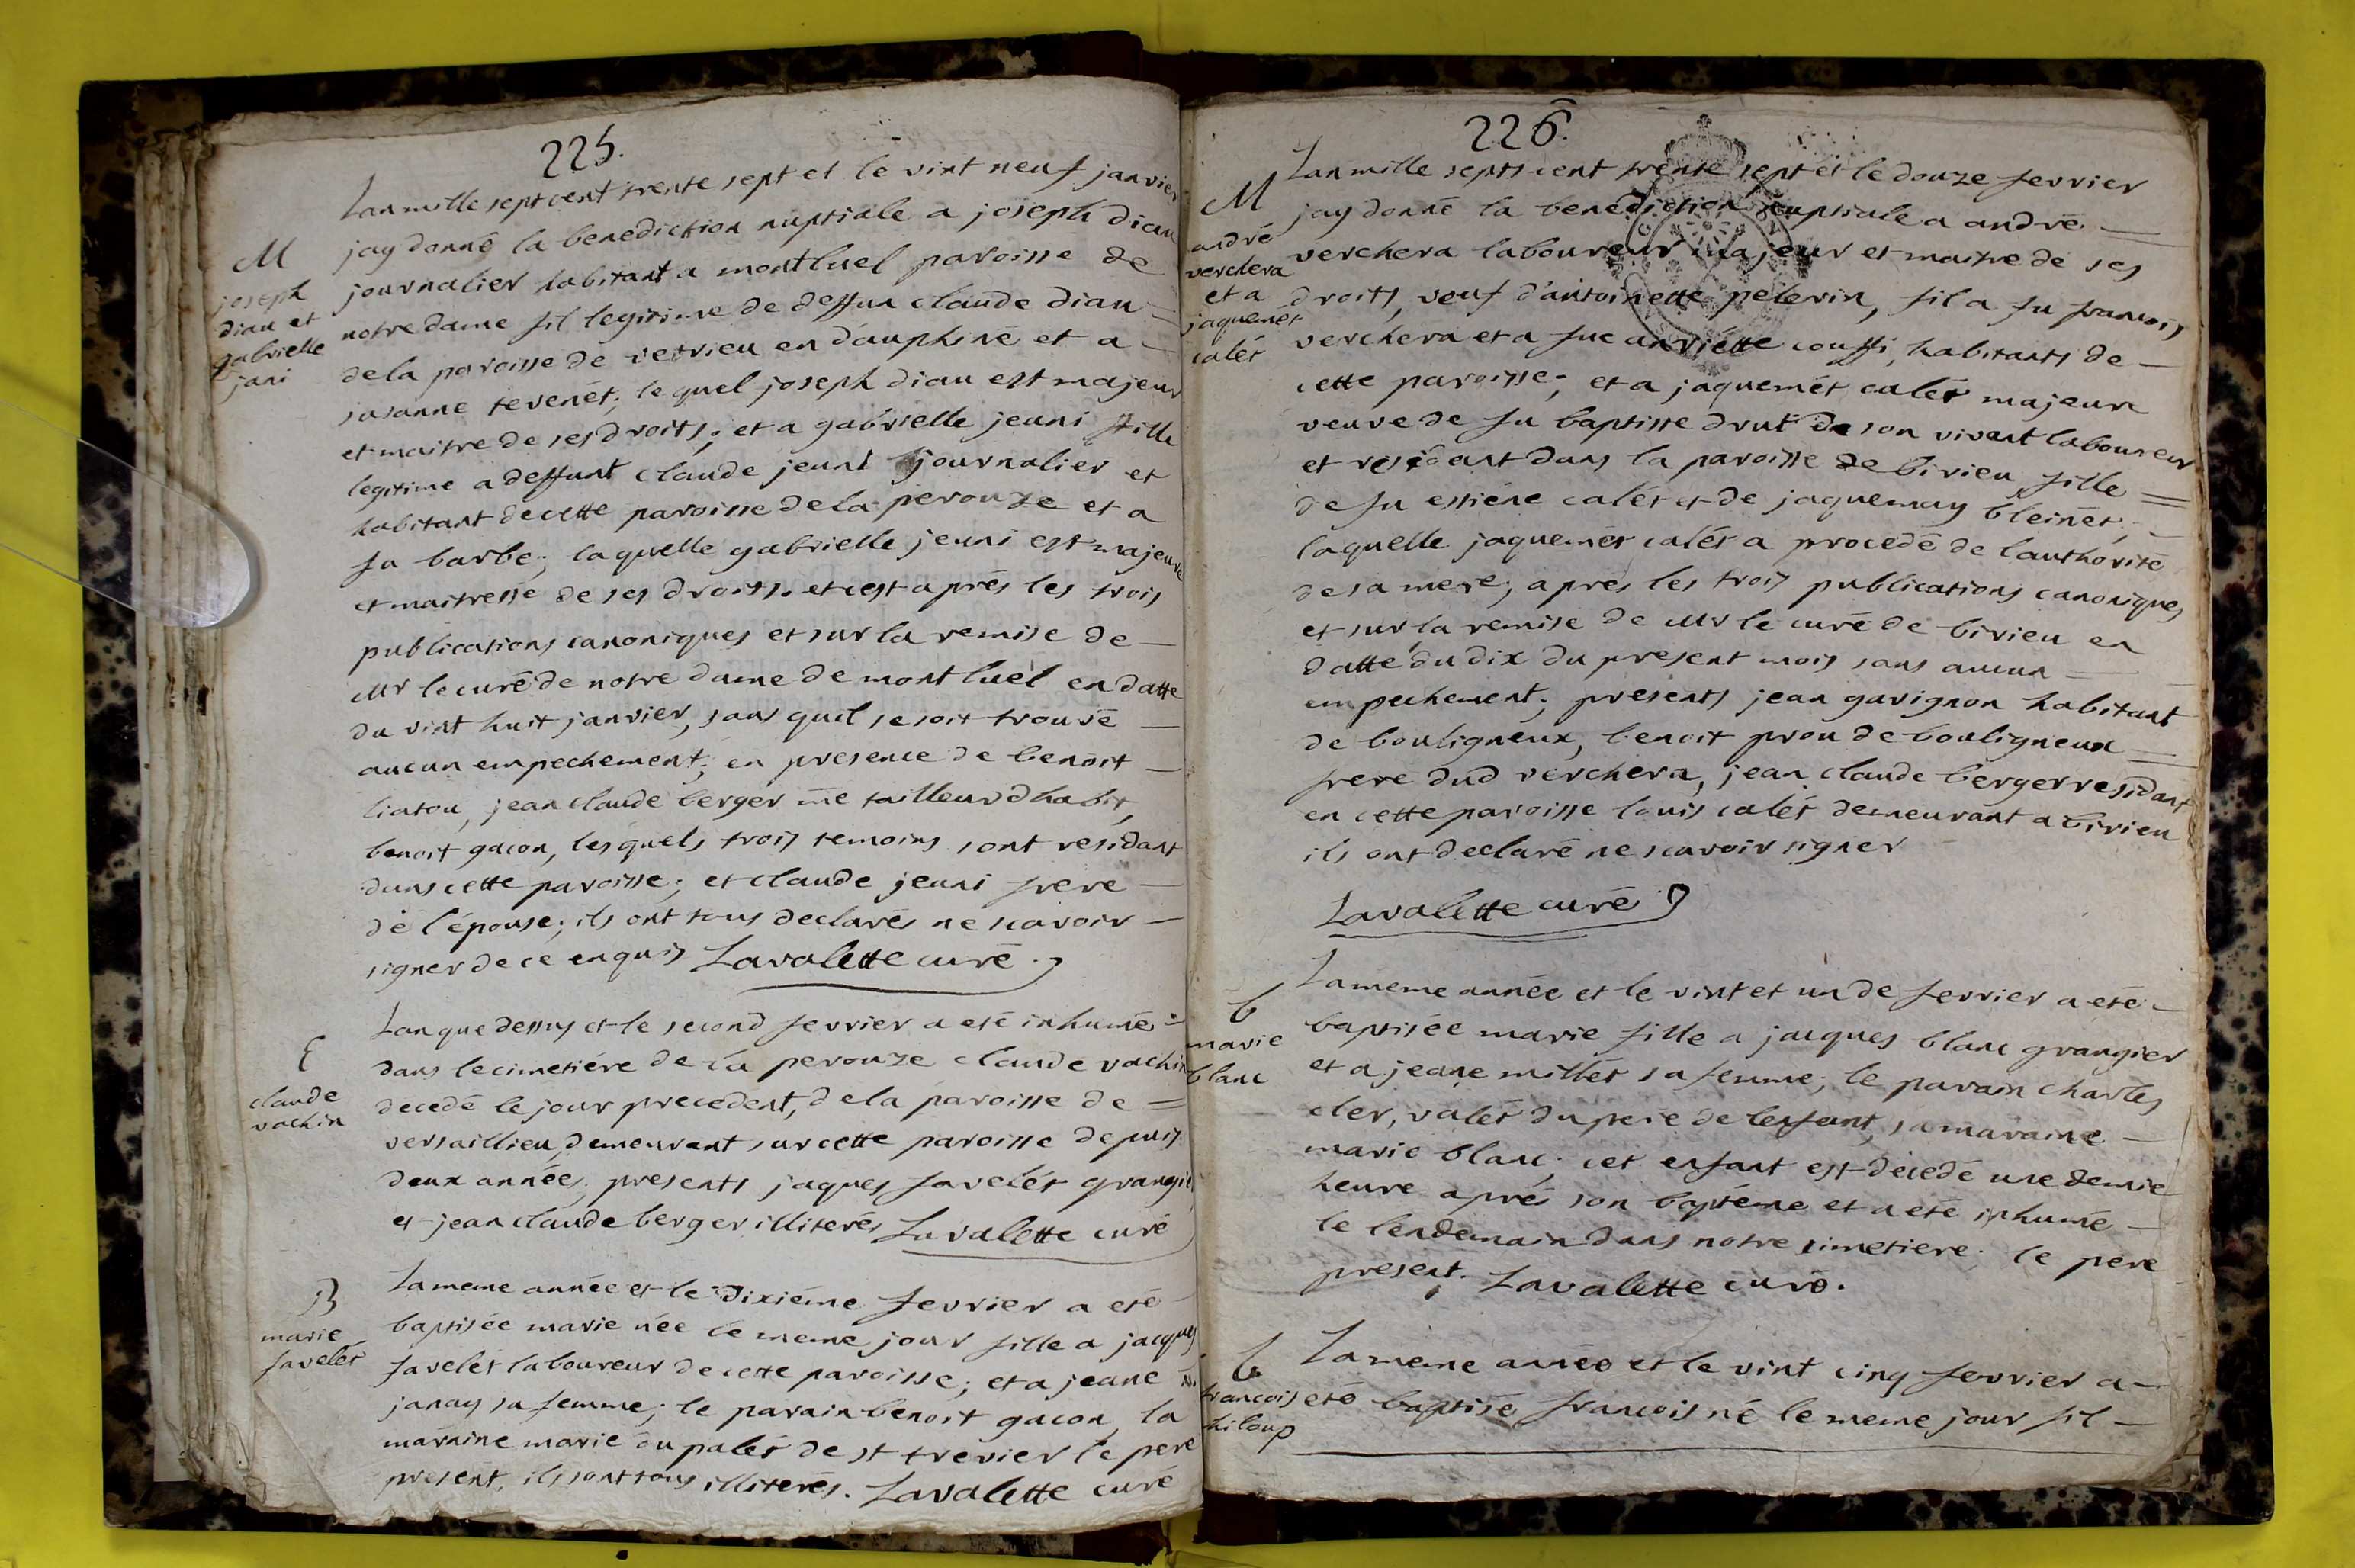 225.
Lan mille sept cent trente sept et le vint neuf janvier
M
joseph
dian et
gabrielle
jani
jay donné la benediction nuptiale a joseph dian
journalier habitant a montluel paroisse de
notre dame fil legitime de deffun claude dian
de la paroisse de vetrieu en dauphiné et a
susanne tevenét; le quel joseph dian est majeur
et maitre de ses droits; et a gabrielle jeuni fille
legitime a deffunt claude jeuni journalier et
habitant de cette paroisse de la perouze et a
fu barbe; laquelle gabrielle jeuni est majeure
et maitresse de ses droits. et cest aprés les trois
publications canoniques et sur la remise de
Mr le curé de notre dame de mont luel en datte
du vint huit janvier, sans quil se soit trouvé
aucun empechement; en presence de benoit
liatou, jean claude berger me tailleur dhabit,
benoit gacon, lesquels trois temoins sont residant
dans cette paroisse; et claude jeuni frere
de l'épouse; ils ont tous declarés ne scavoir
signer de ce enquis Lavalette curé.
E
claude
vachin
Lan que dessus et le second fevrier a eté inhumé
dans le cimetiére de la perouze claude vachin
decedé le jour precedent, de la paroisse de
versaillieu, demeurant sur cette paroisse depuis
deux années; presents jaques favelét grangie
et jean claude berger illiterés Lavalette curé
B
marie
favelét
La meme année et le dixiéme fevrier a eté
baptisée marie née le meme jour fille a jacques
favelét laboureur de cette paroisse; et a jeane
janay sa femme; le parain benoit gacon, la
maraine marie du palét de st trevier le pere
present, ils sont tous illiterés. Lavalette curé
226.
Lan mille septs cent trente sept et le douze fevrier
M
andré
verchera
et a
jaquemét
calét
jay donné la benediction nuptiale a andré
verchera laboureur majeur et maitre de ses
droits, veuf d'antoinette pelerin, fil a fu francois
verchera et a fue anriette couffi, habitants de
cette paroisse; et a jaquemét calét majeure
veuve de fu baptiste drut de son vivant laboureur
et residant dans la paroisse de birieu fille
de fu estiéne calét et de jaquemay bleinét,
laquelle jaquemét calét a procedé de lauthorité
de sa mere; aprés les trois publications canoniques
et sur la remise de Mr le curé de birieu en
datte du dix du present mois sans aucun
empechement; presents jean gavignon habitant
de bouligneux, benoit prou de bouligneux
frere dud verchera, jean claude berger residant
en cette paroisse louis calét demeurant a birieu
ils ont declaré ne scavoir signer
Lavalette curé
b
marie
blanc
La meme année et le vint et un de fevrier a eté
baptisée marie fille a jacques blanc grangier
et a jeane millét sa femme; le parain charles
cler, valét du pere de lenfant, sa maraine
marie blanc; cet enfant est décedé une demie
heure aprés son baptéme et a été inhumé
le lendemain dans notre cimetiere; le pere
present. Lavalette curé.
b
francois
chiloup
La meme année et le vint cinq fevrier a
eté baptisé francois né le meme jour fil